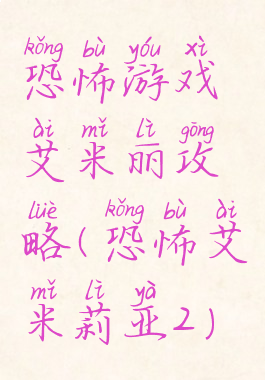 kǒng bù yóu xì
恐怖游戏
ài mǐ lì gōng
艾米丽攻
lüè kǒng bù ài
略(恐怖艾
mǐ lì yà
米莉亚2)